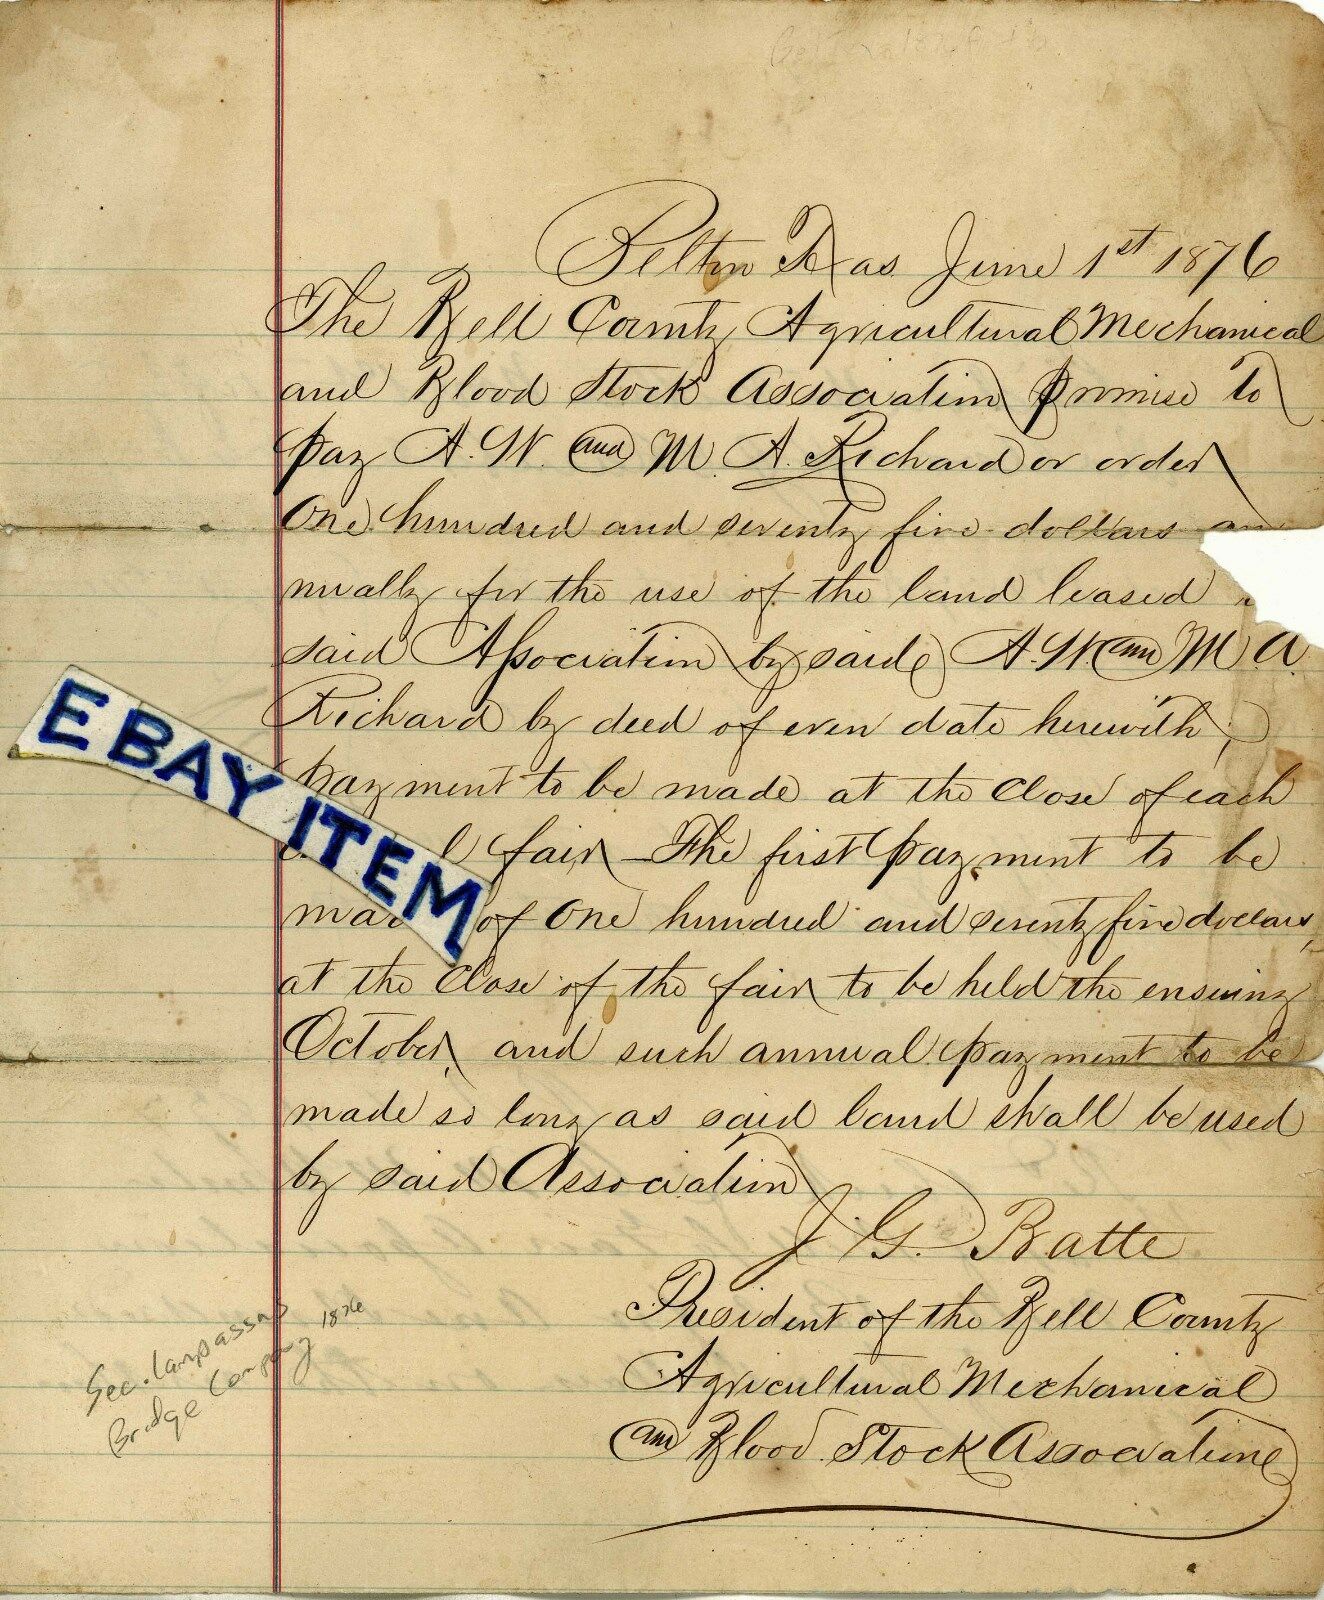 Belton Texas June 1st 1876
The Bell County Agricultural Mechanical
and Blood Stock Association promise to
pay A. W. and M. A. Richard or order
One hundred and seventy five dollars an
nually for the use of the land leased
said Association by said A. W. and M A.
Richard by deed of even date herewith,
payment to be made at the close of each
fair – The first payment to be
made of One hundred and seventy five dollars,
at the close of the fair to be held the ensuing
October, and such annual payment to be
made so long as said land shall be used
by said Association
J. G. Batte
President of the Bell County
Agricultural Mechanical
and Blood Stock Association
EBAY ITEM
Sec. Lampassas
Bridge Company 1876